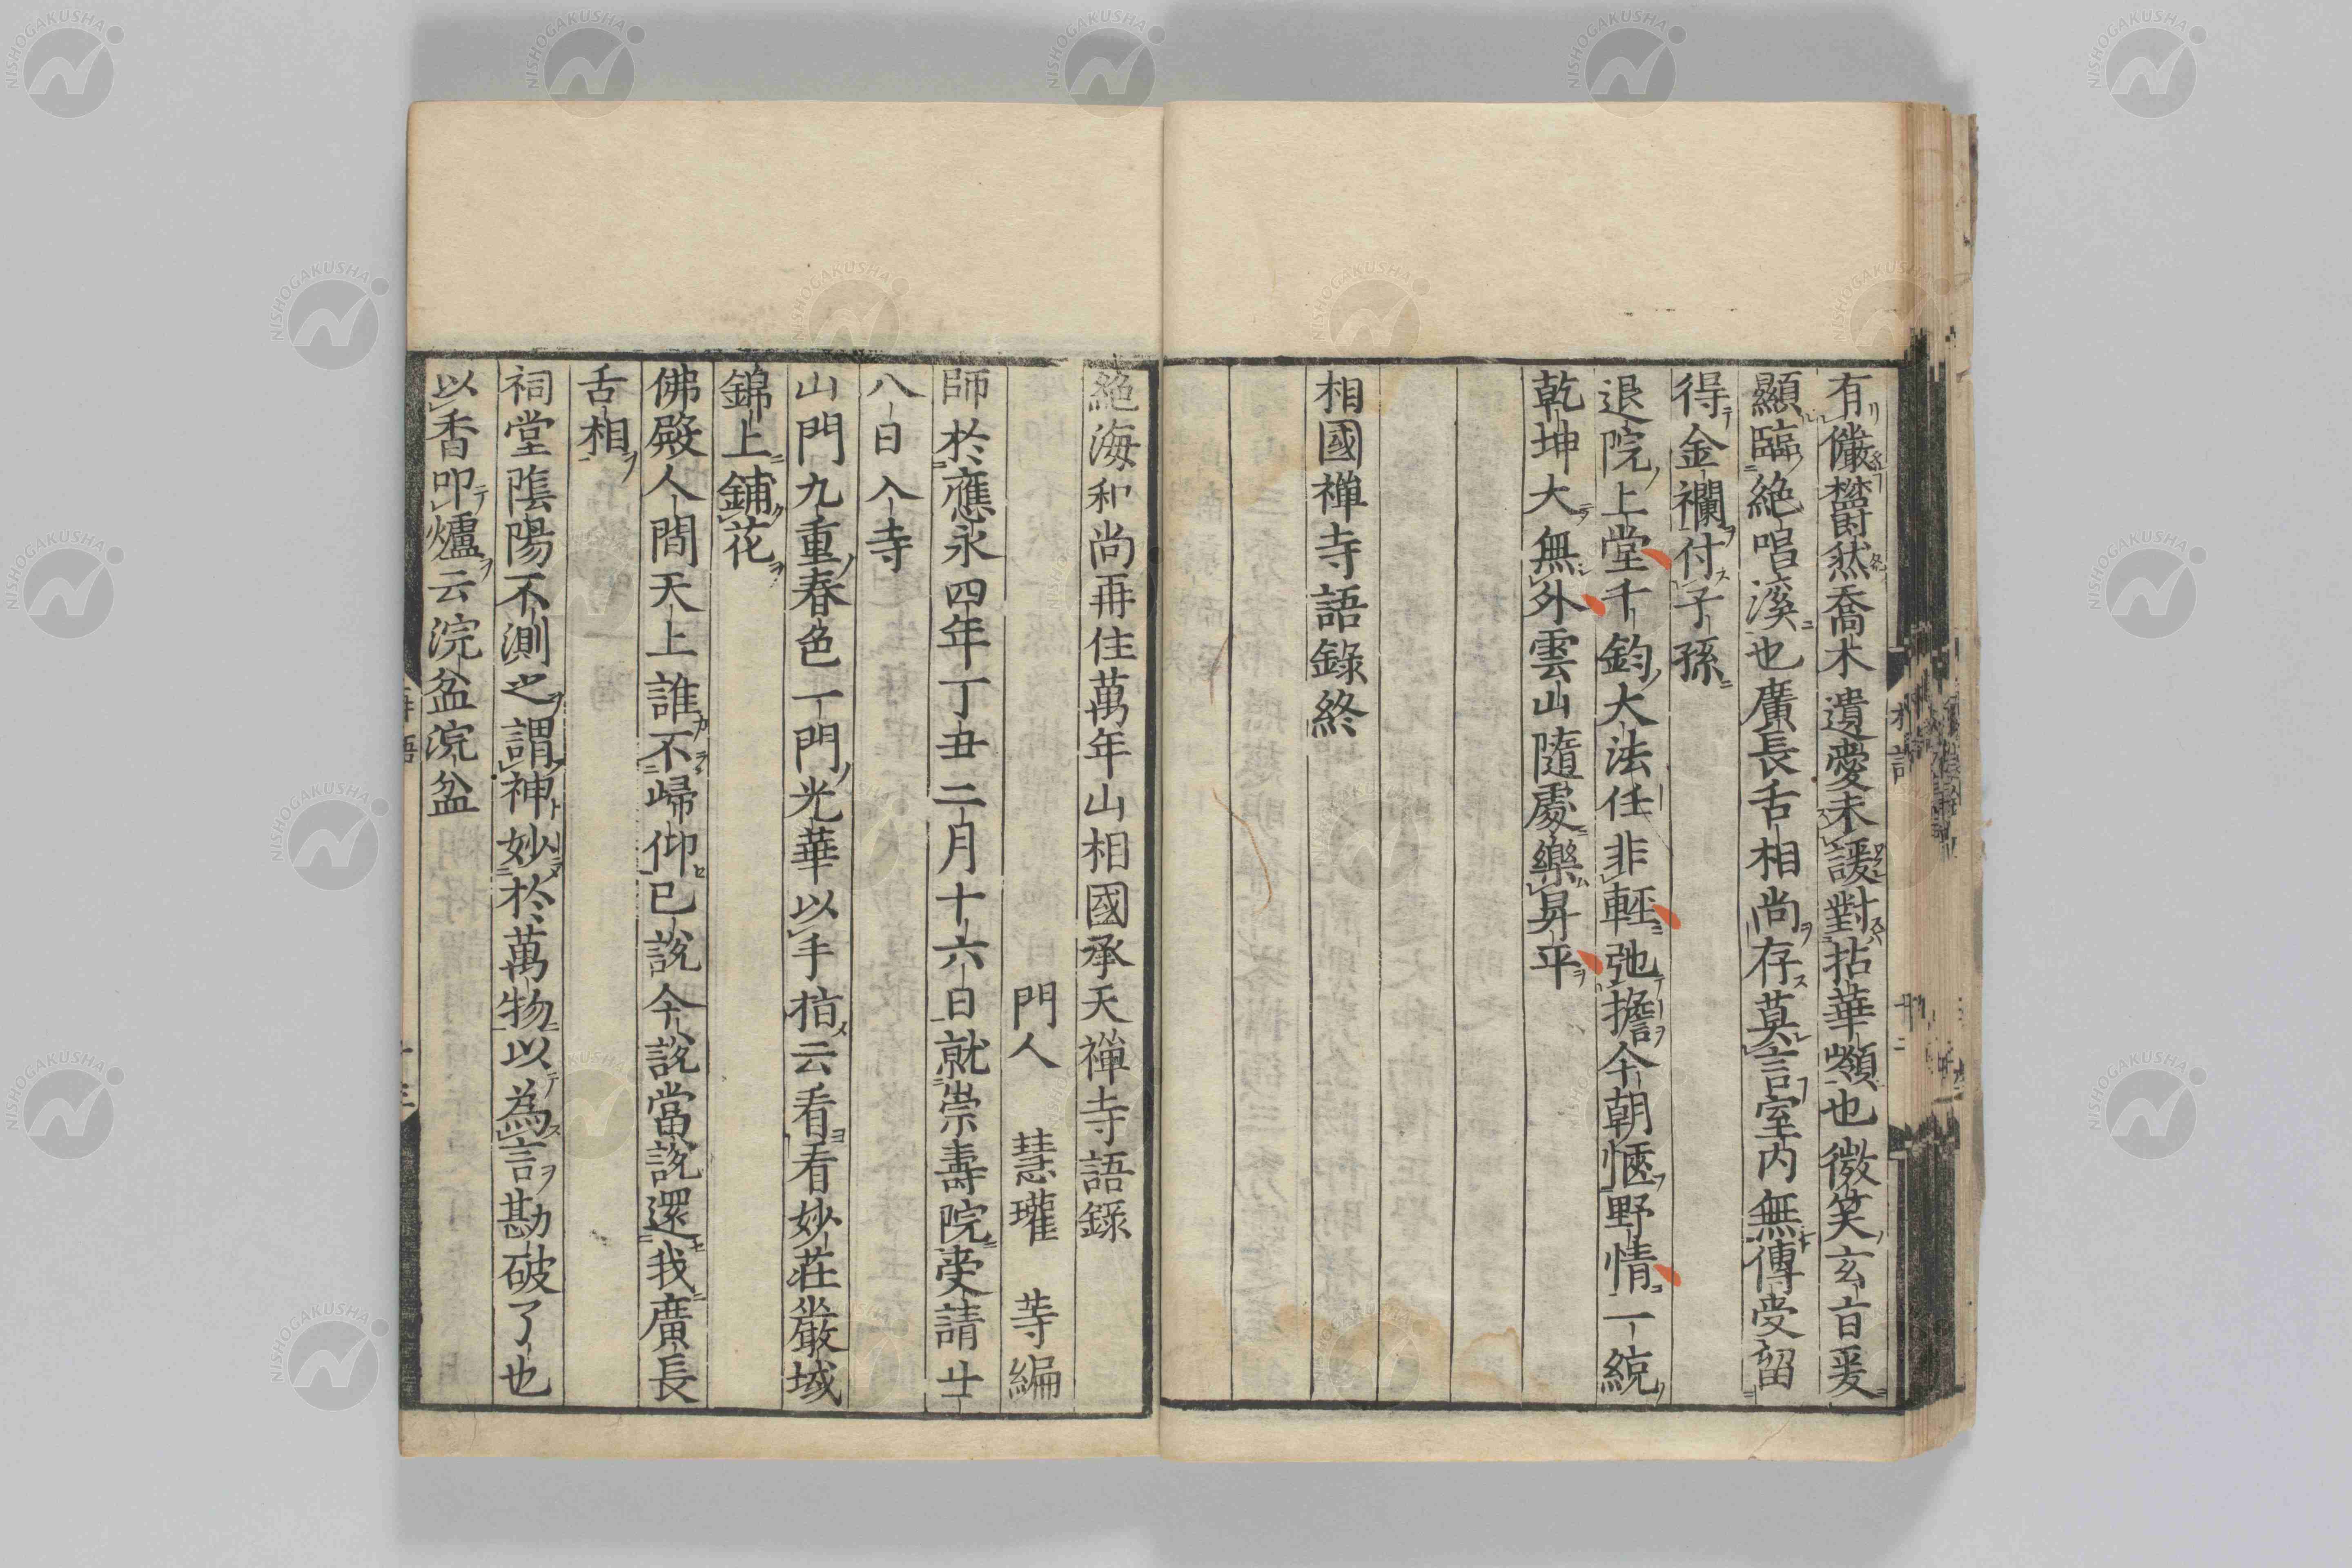 有儼欝然喬木遺愛未諼對拈華嚬也微笑玄旨爰
顯臨絶唱溪也廣長舌相尚存莫言室内無傳受留
得金襴付子孫
退院上堂千鈞大法任非輕弛擔今朝愜野情一統
乾坤大無外雲山隨處樂昇平
相國禪寺語錄終
絶海和尚再住萬年山相國承天禪寺語錄
門人 慧瓘 等編
師於應永四年丁丑二月十六日就崇壽院受請廿
八日入寺
山門九重春色一門光華以手指云看看妙莊嚴域
錦上鋪花
佛殿人間天上誰不歸仰已說今說當說還我廣長
舌相
祠堂陰陽不測之謂神妙於萬物以為言勘破了也
以香叩爐云浣盆浣盆
NISHOGAKUSHA